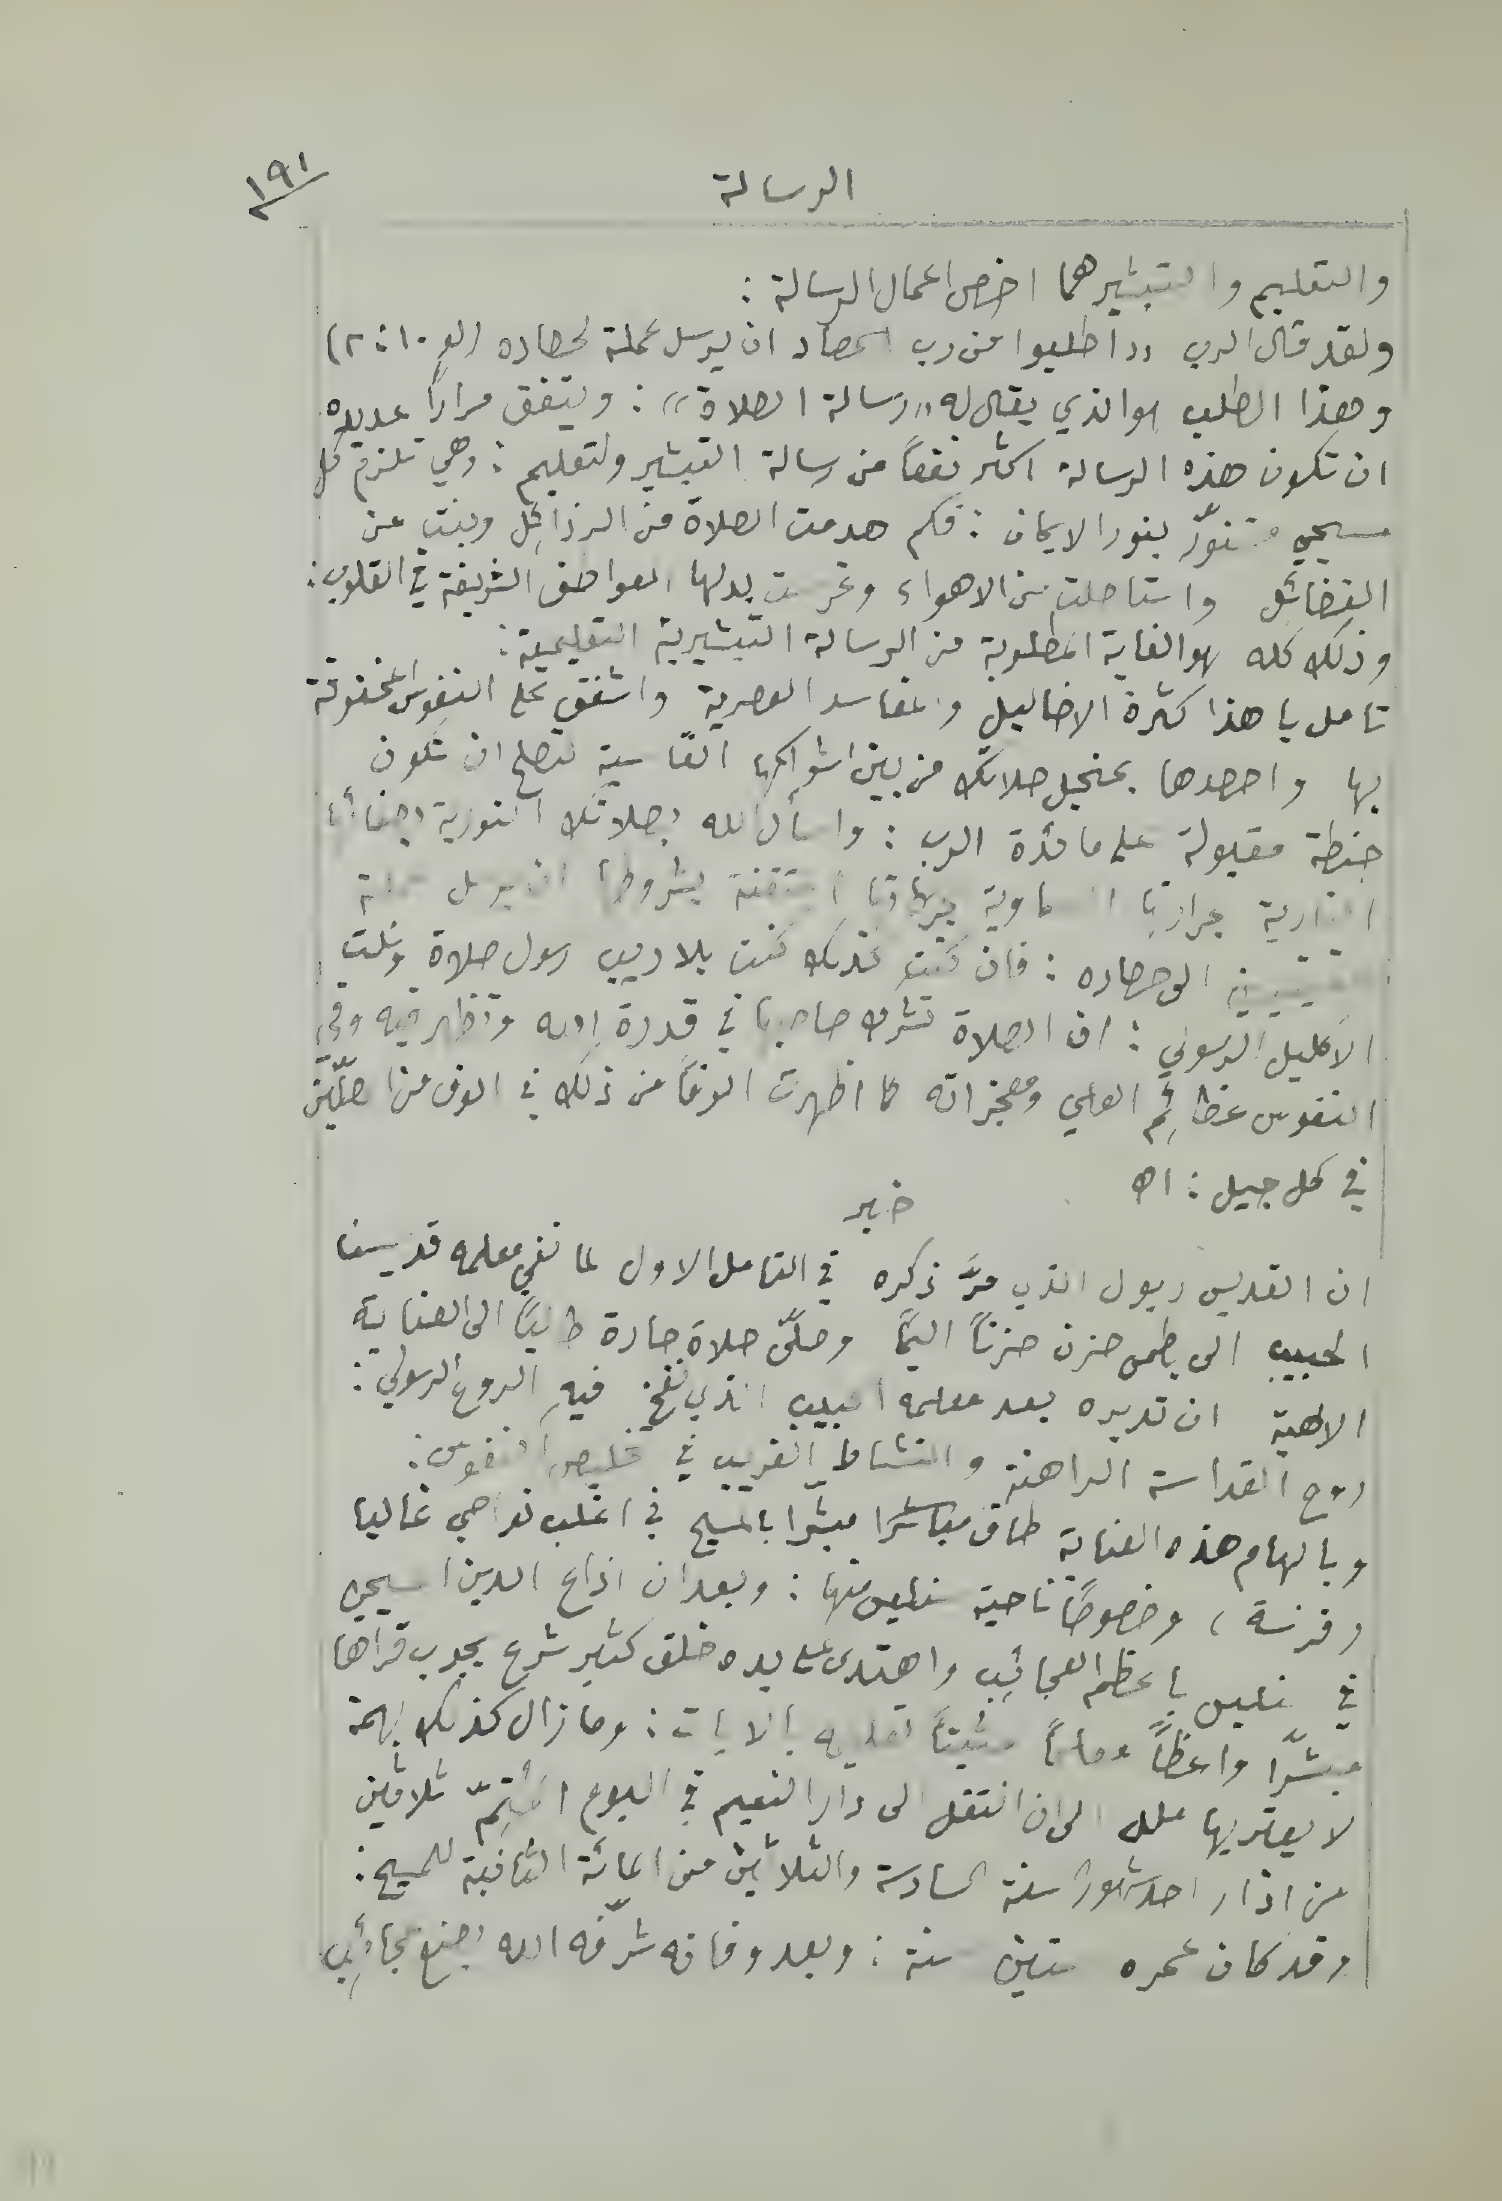 ١٩١
الرسالة
والتعليم والتبشير هما اخص اعمال الرسالة :
ولقد قال الرب «اطلبوا من رب الحصاد ان يرسل عملة لحصاده (لو ١٠: ٢)
وهذا الطلب هو الذي يقال له «رسالة الصلاة» : ويتفق مراراً عديده
ان تكون هذه الرسالة اكثر نفعاً من رسالة التبشير ولتعليم : وهي تلزم كل
مسيحي متنوّر بنور الايمان : فكم هدمت الصلاة من الرذائل وبنت من
الفضائل واستاصلت من الاهواء وغرست بدلها العواطف الشريفة في القلوب :
وذلك كله هو الغاية المطلوبة من الرسالة التبشيرية التعليمية :
تامل يا هذا كثرة الاضاليل والمفاسد العصرية واشفق على النفوس المخنوقة
بها واحصدها بمنجل صلاتك من بين اشواكها القاسية لتصلح ان تكون
حنطة مقبولة على مائدة الرب : واسأل الله بصلاتك النورية بصفائها
النارية بحرارتها السماوية بطهارتها المتقنة بشروطها ان يرسل عملة
الى حصاده : فان كنت كذلك كنت بلا ريب رسول صلاة ونلت
الاكليل الرسولي : ان الصلاة تشرك صاحبها في قدرة الله وتظهر فيه وفي
النفوس عظائم العلي ومعجزاته كما اظهرت الوفاً من ذلك في الوف من المصلّين
في كل جيل : اه
خبر
ان القديس ريول الذي مرَّ ذكره في التامل الاول لما نفي معلمه قديسنا
الحبيب الى بطمس حزن حزناً اليماً وصلّى صلاة حارة طالباً الى العناية
الالهية ان تدبره بعد معلمه الحبيب الذي نفخ فيهِ الروح الرسولي :
روح القداسة الراهنة والنشاط الغريب في تخليص النفوس :
وبالهام هذه العناية طاف مبشرا بالمسيح في اغلب نواحي غاليا
(فرنسة) وخصوصاً ناحية سنليس منها : وبعد ان اذاع الدين المسيحي
في سنليس باعظم العجائب واهتدى على يده خلق كثير شرع يجوب قراها
مبشّرا واعظاً معلماً مثبتاً تعليمه بالايات : وما زال كذلك بهمة
لا يعتريها ملل الى ان انتقل الى دار النعيم في اليوم المتِمّ ثلاثين
من اذار احد شهور السنة السادسة والثلاثين من المائة الثانية للمسيح :
وقد كان عمره ستين سنة : وبعد وفاته شرّفه الله بصنع عجائب